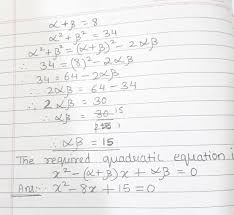 α + β = 8
α² + β² = 34
α² + β² = (α + β)² - 2αβ
∴ 34 = (8)² - 2αβ
34 = 64 - 2αβ
∴ 2αβ = 64 - 34
∴ 2αβ = 30
∴ αβ = 30 15
∴ αβ = 15
The required quadratic equation i
x² - (α + β)x + αβ = 0
Ans:- x² - 8x + 15 = 0